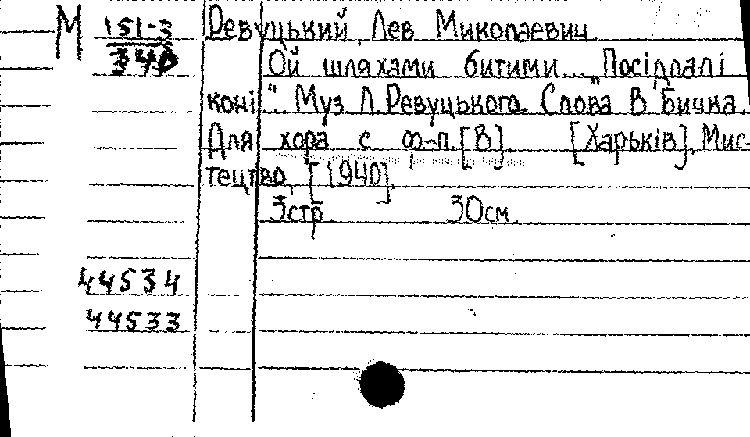 М 151-3 Ревуцький, Лев Миколаевич.
340 Ой шляхами битими... „Посідлалі
коні". Муз Л.Ревуцького. Слова В Бичка.
Для хора с ф-п.[В]. [Харьків]. Мис-
тецтво, [1940].
3стр 30см.
44534
44533